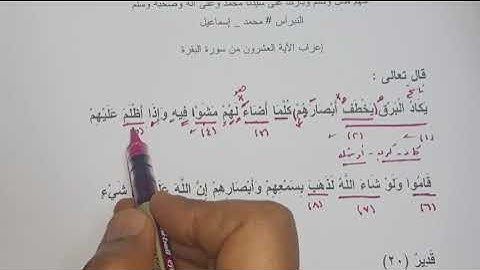 اللهم صل وسلم وبارك على سيدنا محمد وعلى آله وصحبه وسلم
النبراس # محمد _ إسماعيل
إعراب الآية العشرون من سورة البقرة
قال تعالى :
ناسخ
يَكَادُ الْبَرْقُ يَخْطَفُ أَبْصَارَهُمْ كُلَّمَا أَضَاءَ لَهُمْ مَشَوْا فِيهِ وَإِذَا أَظْلَمَ عَلَيْهِمْ
(١) (٢) (٣) (٤) (٥)
كاد - كرب - أوشك
قَامُوا وَلَوْ شَاءَ اللَّهُ لَذَهَبَ بِسَمْعِهِمْ وَأَبْصَارِهِمْ إِنَّ اللَّهَ شَيْءٍ
(٦) (٧) (٨)
قَدِيرٌ (٢٠)